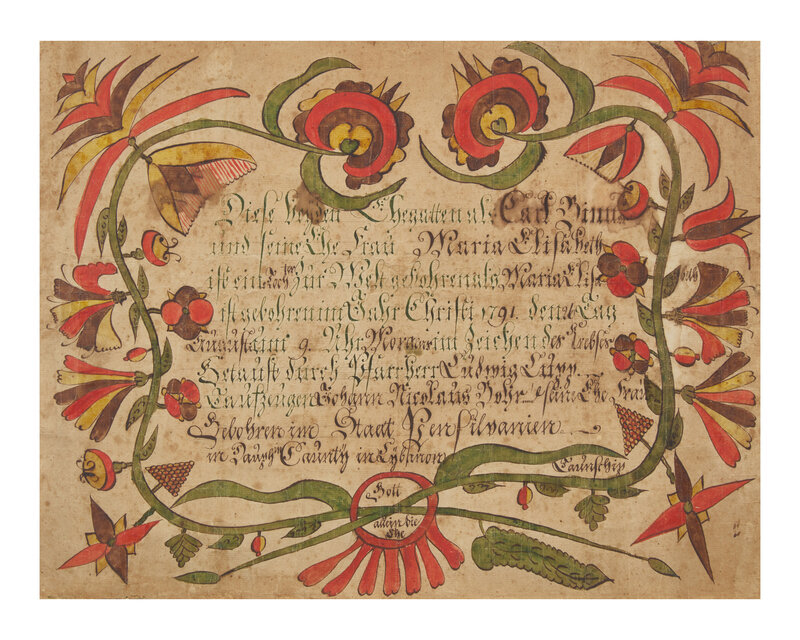 Diese beyden Ehegatten als Carl Binn
und seine Ehe Frau Maria Elisabeth
ist ein dochter zur Welt gebohren als Maria Elisa
beth
ist gebohren im Jahr Christi 1791. den Tag
Augusti um 9. Uhr Morgens im Zeichen des Krebses
Getauft durch Pfarrherr Ludwig Lupp
Taufzeugen Johann Nicolaus Bohr seine Ehe Frau
Gebohren im Staat Pensilvanien
in Dauphn Caunty in Taunschip
Gott
allein die
Ehe